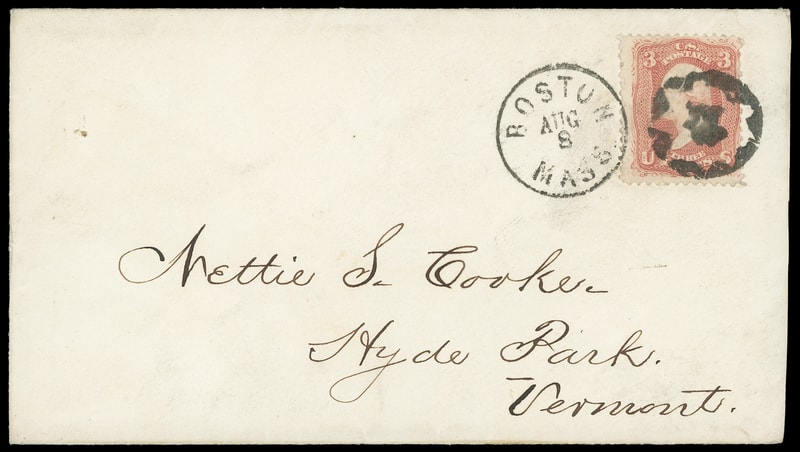 3 U.S. 3
POSTAGE
U S
BOSTON
AUG
8
MASS
Nettie S. Cooke.
Hyde Park.
Vermont.